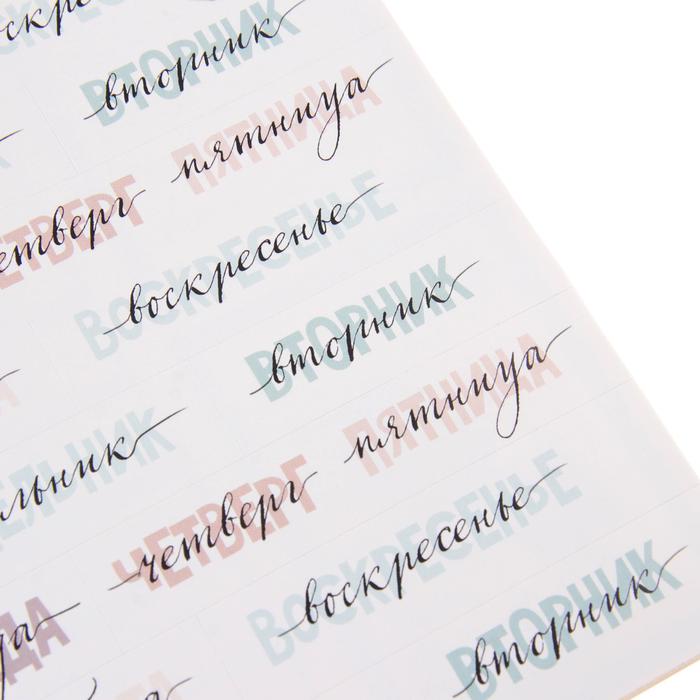 воскре
вторник ВТОРНИК
пятница ПЯТНИЦА
етверг ЕТВЕРГ
воскресенье ВОСКРЕСЕНЬЕ
вторник ВТОРНИК
пятница ПЯТНИЦА
льник ЕЛЬНИК
четверг ЧЕТВЕРГ
воскресенье ВОСКРЕСЕНЬЕ
вторник ВТОРНИК
да ДА